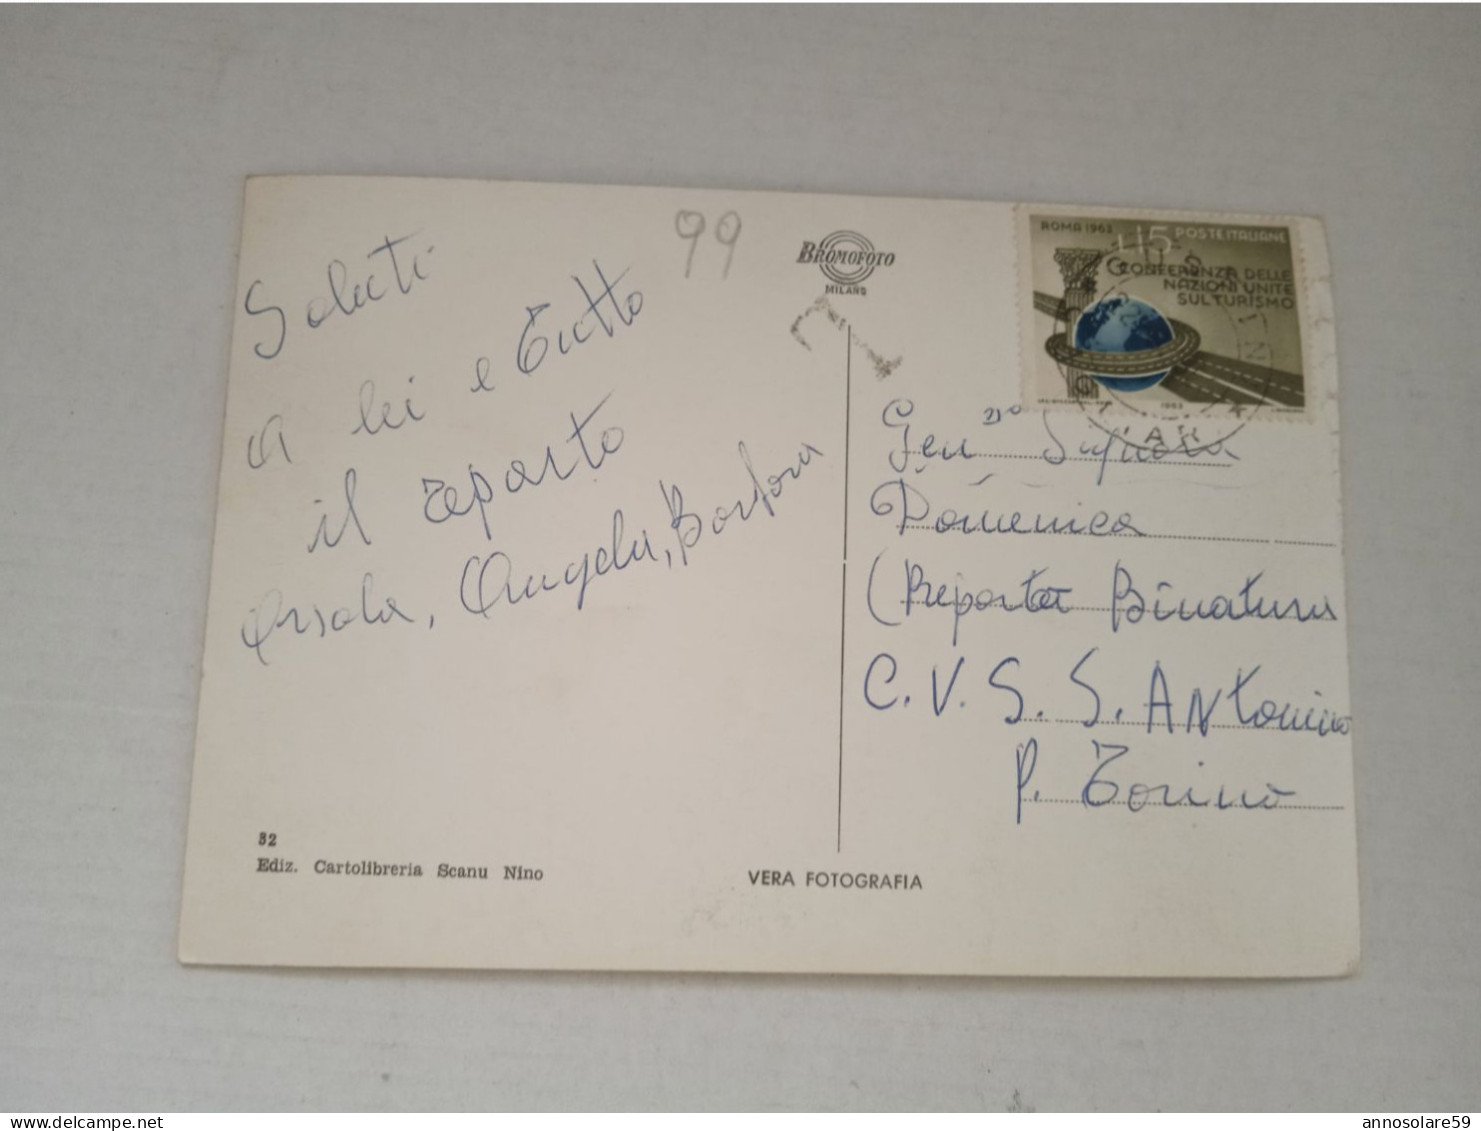 Saluti
a lei e tutto
il reparto
Orsola, Angela,
99
BROMOFOTO
MILANO
T
ROMA 1963 L.15 POSTE ITALIANE
CONFERENZA DELLE
NAZIONI UNITE
SUL TURISMO
1963
Gen Signora
Domenica
(Reparto Binatura
C. V. S. S. ANtonino
P. Torino
32
Ediz. Cartolibreria Scanu Nino
VERA FOTOGRAFIA
annosolare59